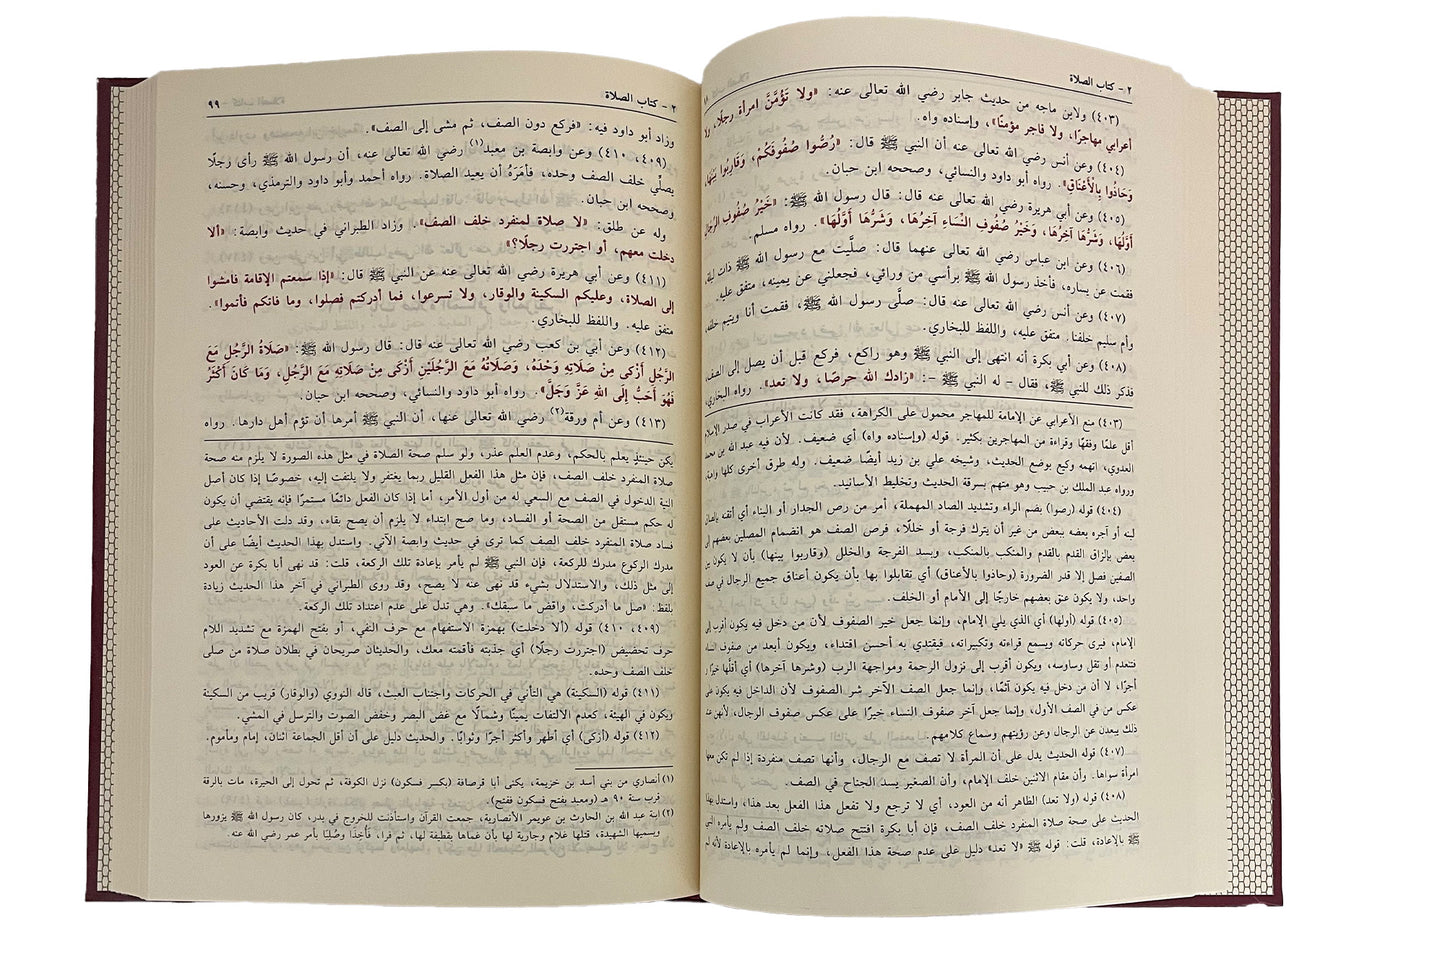 ٢ - كتاب الصلاة
(٤٠٣) ولابن ماجه من حديث جابر رضي الله تعالى عنه: «ولا تَؤُمَّنَّ امرأة رجلًا، ولا
أعرابي مهاجرًا، ولا فاجر مؤمنًا»، وإسناده واه.
(٤٠٤) وعن أنس رضي الله تعالى عنه أن النبي ﷺ قال: «رُصُّوا صُفُوفَكُمْ، وَقَارِبُوا بَيْنَهَا،
وَحَاذُوا بِالْأَعْنَاقِ». رواه أبو داود والنسائي، وصححه ابن حبان.
(٤٠٥) وعن أبي هريرة رضي الله تعالى عنه قال: قال رسول الله ﷺ: «خَيْرُ صُفُوفِ الرِّجَالِ
أوَّلُهَا، وَشَرُّهَا آخِرُهَا، وَخَيْرُ صُفُوفِ النِّسَاءِ آخِرُهَا، وَشَرُّهَا أَوَّلُهَا». رواه مسلم.
(٤٠٦) وعن ابن عباس رضي الله تعالى عنهما قال: صلَّيت مع رسول الله ﷺ ذات ليلة،
فقمت عن يساره، فأخذ رسول الله ﷺ برأسي من ورائي، فجعلني عن يمينه، متفق عليه.
(٤٠٧) وعن أنس رضي الله تعالى عنه قال: صلَّى رسول الله ﷺ، فقمت أنا ويتيم خلفه،
وأم سليم خلفنا. متفق عليه، واللفظ للبخاري.
(٤٠٨) وعن أبي بكرة أنه انتهى إلى النبي ﷺ وهو راكع، فركع قبل أن يصل إلى الصف،
فذكر ذلك للنبي ﷺ، فقال - له النبي ﷺ -: «زادك الله حرصًا، ولا تعد». رواه البخاري،
(٤٠٣) منع الأعرابي عن الإمامة للمهاجر محمول على الكراهة، فقد كانت الأعراب في صدر الإسلام
أقل علمًا وفقهًا وقراءة من المهاجرين بكثير. قوله (وإسناده واه) أي ضعيف. لأن فيه عبد الله بن محمد
العدوي، اتهمه وكيع بوضع الحديث، وشيخه علي بن زيد أيضًا ضعيف. وله طرق أخرى كلها واهية،
ورواه عبد الملك بن حبيب وهو متهم بسرقة الحديث وتخليط الأسانيد.
(٤٠٤) قوله (رصوا) بضم الراء وتشديد الصاد المهملة، أمر من رص الجدار أو البناء أي أتقنه بإلصاق
لبنه أو آجره بعضه ببعض من غير أن يترك فرجة أو خللًا، فرص الصف هو انضمام المصلين بعضهم إلى
بعض بإلزاق القدم بالقدم والمنكب بالمنكب، وبسد الفرجة والخلل (وقاربوا بينها) بأن لا يكون بين
الصفين فصل إلا قدر الضرورة (وحاذوا بالأعناق) أي تقابلوا بها بأن يكون أعناق جميع الرجال في صف
واحد، ولا يكون عنق بعضهم خارجًا إلى الأمام أو الخلف.
(٤٠٥) قوله (أولها) أي الذي يلي الإمام، وإنما جعل خير الصفوف لأن من دخل فيه يكون أقرب إلى
الإمام، فيرى حركاته ويسمع قراءته وتكبيراته، فيقتدي به أحسن اقتداء، ويكون أبعد من صفوف النساء
فتنعدم أو تقل وساوسه، ويكون أقرب إلى نزول الرحمة ومواجهة الرب (وشرها آخرها) أي أقلُّها خيرًا و
أجرًا، لا أن من دخل فيه يكون آثمًا، وإنما جعل الصف الآخر شر الصفوف لأن الداخل فيه يكون على
عكس من في الصف الأول، وإنما جعل آخر صفوف النساء خيرًا على عكس صفوف الرجال، لأنهن عند
ذلك يبعدن عن الرجال وعن رؤيتهم وسماع كلامهم.
(٤٠٧) قوله الحديث يدل على أن المرأة لا تصف مع الرجال، وأنها تصف منفردة إذا لم تكن معها
امرأة سواها. وأن مقام الاثنين خلف الإمام، وأن الصغير يسد الجناح في الصف.
(٤٠٨) قوله (ولا تعد) الظاهر أنه من العود، أي لا ترجع ولا تفعل هذا الفعل بعد هذا، واستدل بهذا
الحديث على صحة صلاة المنفرد خلف الصف، فإن أبا بكرة افتتح صلاته خلف الصف ولم يأمره النبي
ﷺ بالإعادة، قلت: قوله ﷺ «لا تعد» دليل على عدم صحة هذا الفعل، وإنما لم يأمره بالإعادة لأنه لم
٢ - كتاب الصلاة ٩٩
وزاد أبو داود فيه: «فركع دون الصف، ثم مشى إلى الصف».
(٤٠٩، ٤١٠) وعن وابصة بن معبد(١) رضي الله تعالى عنه، أن رسول الله ﷺ رأى رجلًا
يصلِّي خلف الصف وحده، فأمَرَهُ أن يعيد الصلاة. رواه أحمد وأبو داود والترمذي، وحسنه،
وصححه ابن حبان.
وله عن طلق: «لا صلاة لمنفرد خلف الصف». وزاد الطبراني في حديث وابصة: «ألا
دخلت معهم، أو اجتررت رجلًا؟»
(٤١١) وعن أبي هريرة رضي الله تعالى عنه عن النبي ﷺ قال: «إذا سمعتم الإقامة فامشوا
إلى الصلاة، وعليكم السكينة والوقار، ولا تسرعوا، فما أدركتم فصلوا، وما فاتكم فأتموا».
متفق عليه. واللفظ للبخاري.
(٤١٢) وعن أبي بن كعب رضي الله تعالى عنه قال: قال رسول الله ﷺ: «صَلَاةُ الرَّجُلِ مَعَ
الرَّجُلِ أَزْكَى مِنْ صَلَاتِهِ وَحْدَهُ، وَصَلَاتُهُ مَعَ الرَّجُلَيْنِ أَزْكَى مِنْ صَلَاتِهِ مَعَ الرَّجُلِ، وَمَا كَانَ أَكْثَرَ
فَهُوَ أَحَبُّ إِلَى اللهِ عَزَّ وَجَلَّ». رواه أبو داود والنسائي، وصححه ابن حبان.
(٤١٣) وعن أم ورقة(٢) رضي الله تعالى عنها، أن النبي ﷺ أمرها أن تؤم أهل دارها. رواه
يكن حينئذٍ يعلم بالحكم، وعدم العلم عذر، ولو سلم صحة الصلاة في مثل هذه الصورة لا يلزم منه صحة
صلاة المنفرد خلف الصف، فإن مثل هذا الفعل القليل ربما يغتفر ولا يلتفت إليه، خصوصًا إذا كان أصل
النية الدخول في الصف مع السعي له من أول الأمر، أما إذا كان الفعل دائمًا مستمرًا فإنه يقتضي أن يكون
له حكم مستقل من الصحة أو الفساد، وما صح ابتداء لا يلزم أن يصح بقاء، وقد دلت الأحاديث على
فساد صلاة المنفرد خلف الصف كما ترى في حديث وابصة الآتي. واستدل بهذا الحديث أيضًا على أن
مدرك الركوع مدرك للركعة، فإن النبي ﷺ لم يأمر بإعادة تلك الركعة، قلت: قد نهى أبا بكرة عن العود
إلى مثل ذلك، والاستدلال بشيء قد نهى عنه لا يصح، وقد روى الطبراني في آخر هذا الحديث زيادة
بلفظ: «صل ما أدركت، واقض ما سبقك». وهي تدل على عدم اعتداد تلك الركعة.
(٤٠٩، ٤١٠) قوله (ألا دخلت) بهمزة الاستفهام مع حرف النفي، أو بفتح الهمزة مع تشديد اللام
حرف تحضيض (اجتررت رجلًا) أي جذبته فأقمته معك، والحديثان صريحان في بطلان صلاة من صلى
خلف الصف وحده.
(٤١١) قوله (السكينة) هي التأني في الحركات واجتناب العبث، قاله النووي (والوقار) قريب من السكينة
ويكون في الهيئة، كعدم الالتفات يمينًا وشمالًا مع غض البصر وخفض الصوت والترسل في المشي.
(٤١٢) قوله (أزكى) أي أطهر وأكثر أجرًا وثوابًا. والحديث دليل على أن أقل الجماعة اثنان، إمام ومأموم.
(١) أنصاري من بني أسد بن خزيمة، يكنى أبا قرصافة (بكسر فسكون) نزل الكوفة، ثم تحول إلى الحيرة، مات بالرقة
قرب سنة ٩٠ هـ (ومعبد بفتح فسكون ففتح).
(٢) ابنة عبد الله بن الحارث بن عويمر الأنصارية، جمعت القرآن واستأذنت للخروج في بدر، كان رسول الله ﷺ يزورها
ويسميها الشهيدة، قتلها غلام وجارية لها بأن غماها بقطيفة لها، ثم فرا، فأخذا وصُلِبَا بأمر عمر رضي الله عنه.